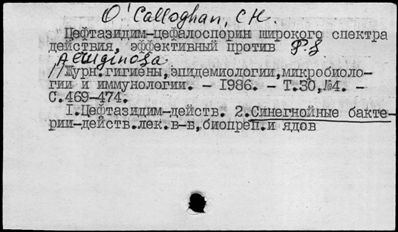 O'Calloghan, C.H.
Цефтазидим-цефалоспорин широкого спектра
действия, эффективный против Ps
Aeruginosa
//Журн.гигиены,эпидемиологии,микробиоло-
гии и иммунологии. - 1986. - Т.30,№4. -
С.469-474.
1.Цефтазидим-действ. 2.Синегнойные бакте-
рии-действ.лек.в-в,биопреп.и ядов